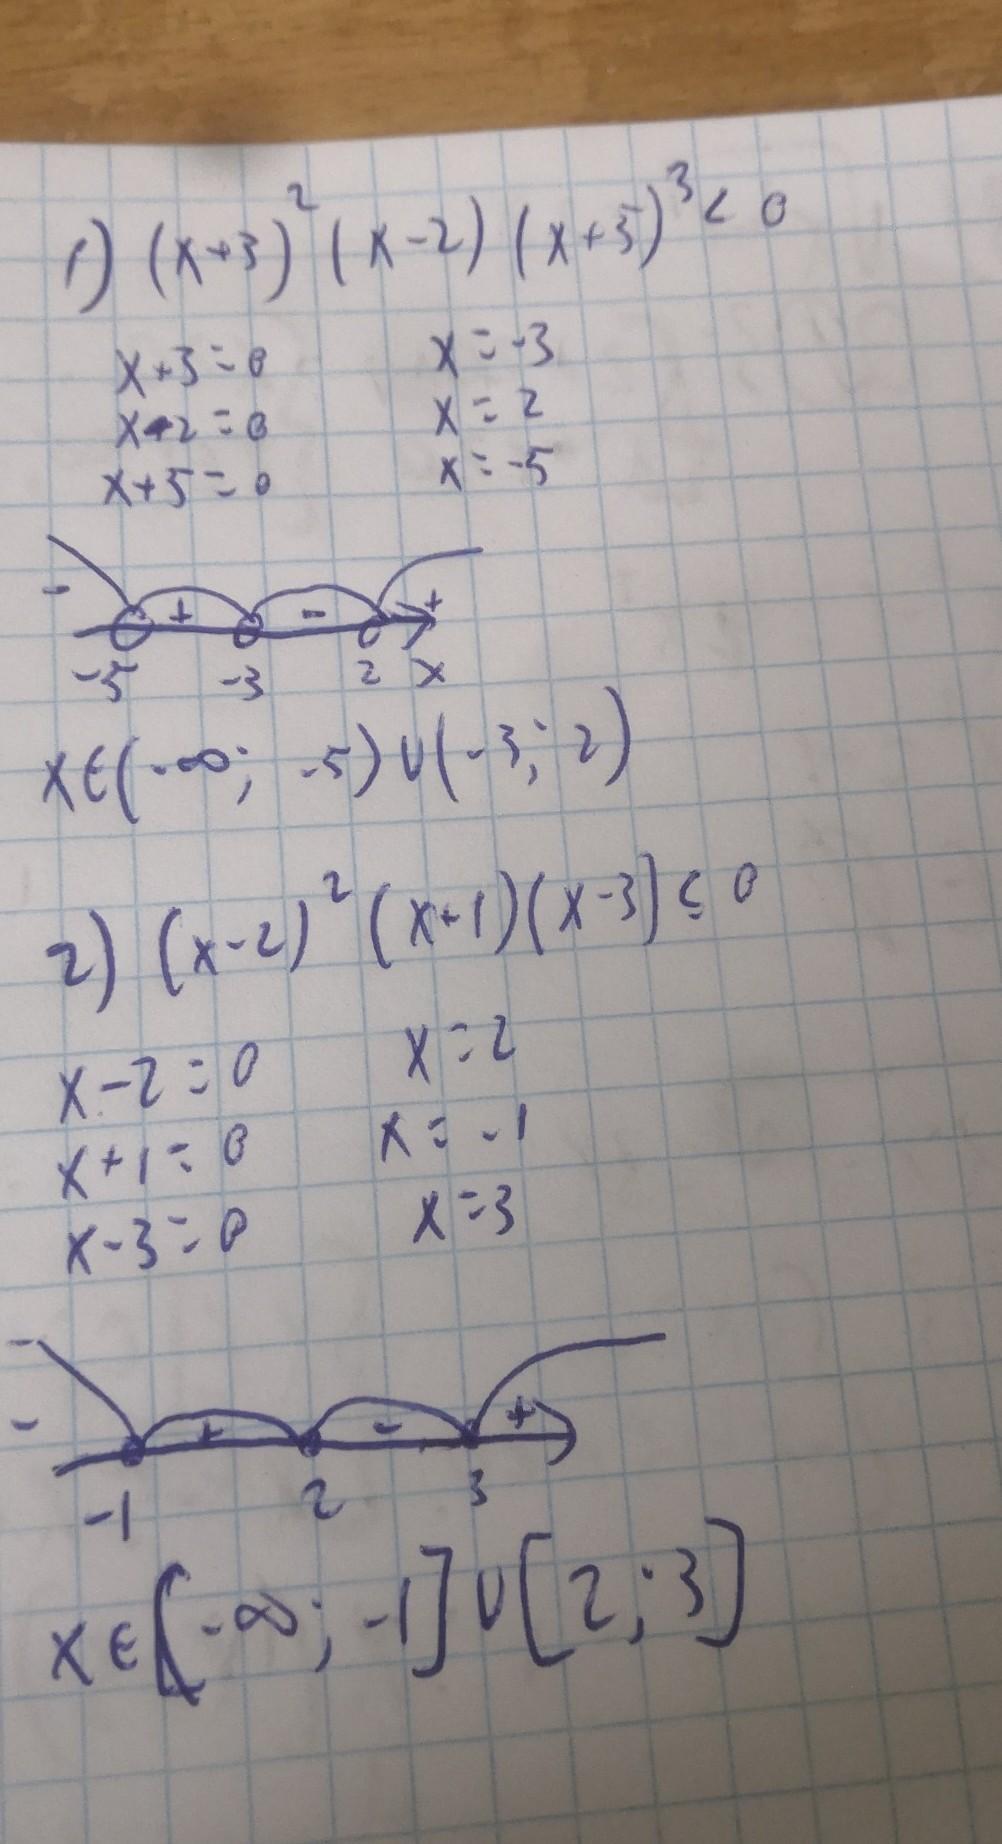 1) (x+3)² (x-2) (x+5)³ < 0
x+3=0 x=-3
x-2=0 x=2
x+5=0 x=-5
- + - +
-5 -3 2 x
x∈(-∞; -5)∪(-3; 2)
2) (x-2)² (x+1)(x-3) ≤ 0
x-2=0 x=2
x+1=0 x=-1
x-3=0 x=3
- + - +
-1 2 3
x∈[-∞; -1]∪[2; 3]